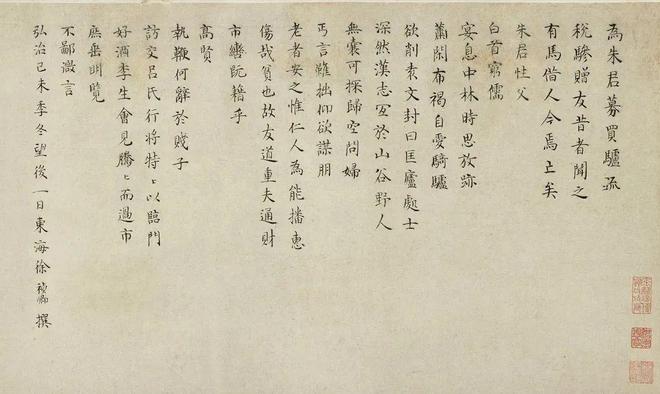 為朱君募買驢疏
稅驂贈友昔者聞之
有馬借人今焉亡矣
朱君性父
白首窮儒
宴息中林時思放跡
蕭閑布褐自愛騎驢
欲削袁文封曰匡廬處士
深然漢志宜於山谷野人
無囊可探歸空問婦
丐言雖拙仰欲謀朋
老者安之惟仁人為能播惠
傷哉貧也故友道重夫通財
市轡既籍乎
高賢
執鞭何辭於賤子
訪交呂氏行將特〻以臨門
好酒李生會見騰〻而過市
庶垂明覽
不鄙微言
弘治己未季冬望後一日東海徐禎卿撰